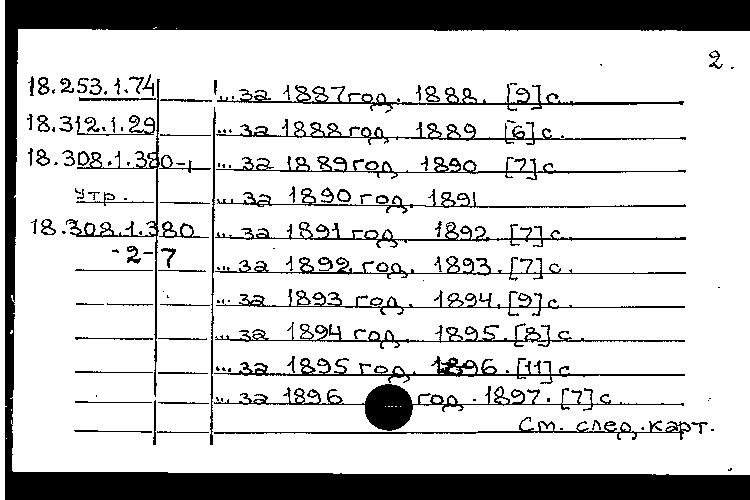 2.
18.253.1.74 ... за 1887 год. 1888. [9] с.
18.312.1.29 ... за 1888 год. 1889 [6] с.
18.308.1.380-1 ... за 1889 год. 1890 [7] с
Утр. ... за 1890 год. 1891
18.308.1.380 ... за 1891 год. 1892 [7] с.
-2-7 ... за 1892 год. 1893. [7] с.
... за 1893 год. 1894. [9] с.
... за 1894 год. 1895. [8] с.
... за 1895 год. 1896. [11] с
... за 1896 год. 1897. [7] с.
См. след. карт.